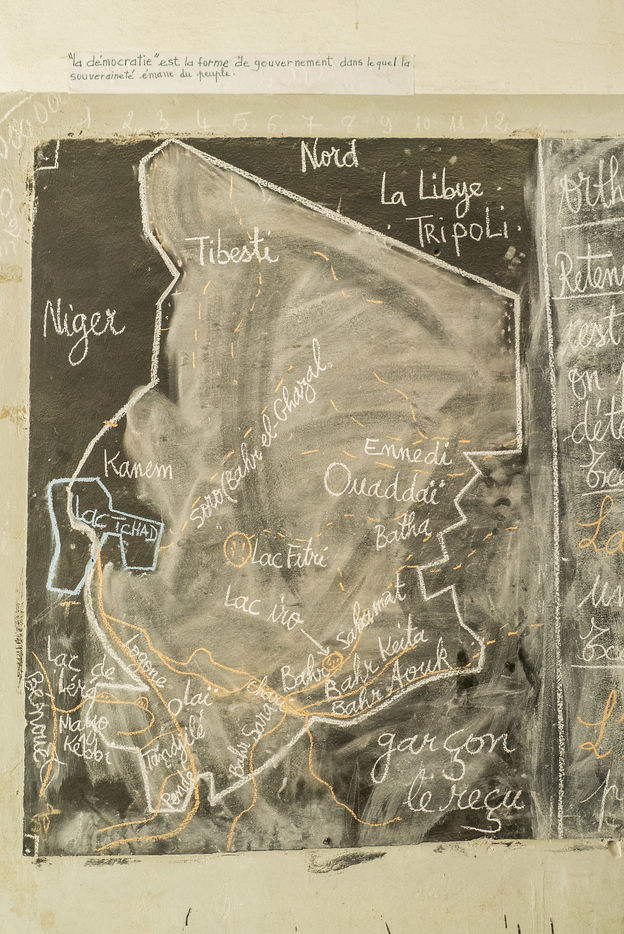 "la démocratie" est la forme de gouvernement dans lequel la
souveraineté émane du peuple.
1 2 3 4 5 6 7 8 9 10 11 12
Nord
La Libye
TRIPOLI.
Tibesti
Niger
Soro (Bahr el-Ghazal.
Kanem
Ennedi
Ouaddaï
Lac TCHAD
Batha
Lac Fitri
Lac iro
Salamat
Bahr
Bahr Keita
Bahr Aouk
Logone
Lac de
Léré
Mayo
Kébbi
Bénoué
Olaï
Tandjilé
Pendé
Chari
Bahr Sara
garçon
le reçu
Orth
Reten
c'est
on
déte
La
un
L'
p